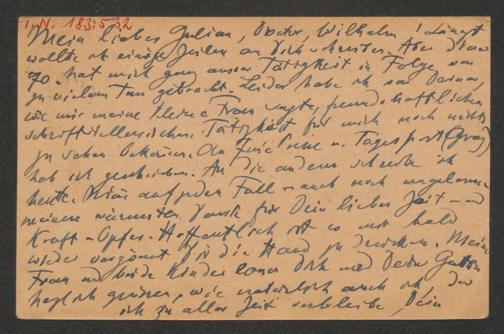 I.N. 183.532
Mein lieber Julian, Doctor, Wilhelm! Längst
wollte ich einige Zeilen an Dich schreiben. Aber diese
70. hat mich ganz ausser Tätigkeit in Folge von
zu vielem Tun gebracht. Leider habe ich von Deiner,
wie mir meine kleine Frau sagte, freundschaftlichen
schriftstellerischen Tätigkeit für mich noch nichts
zu sehen bekommen. An Neue u. Tagespost (Graz)
hab ich geschrieben. An die andern schreibe ich
heute. Nimm auf jeden Fall – auch noch ungelesen
meinen wärmsten Dank für Dein liebes Zeit – und
Kraft – Opfer. Hoffentlich ist es mir bald
wieder vergönnt Dir die Hand zu drücken. Meine
Frau und beide Kinder lassen Dich und Deine Gattin
herzlich grüssen, wie natürlich auch ich, der
ich zu aller Zeit verbleibe, Dein